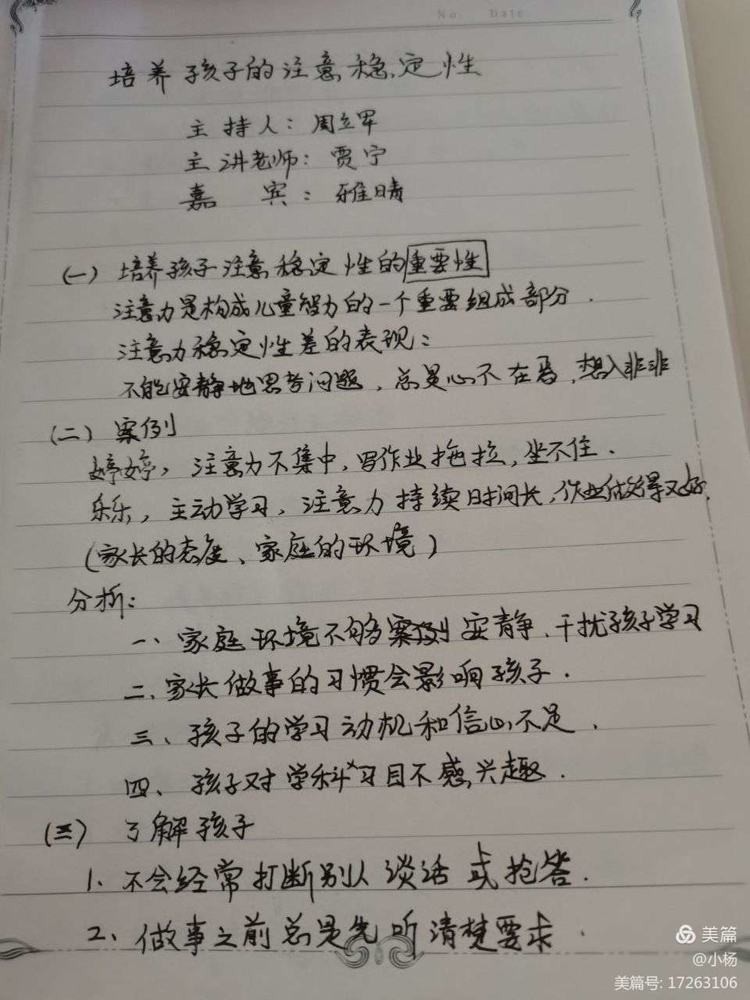 No. Date
培养孩子的注意稳定性
主持人：周立军
主讲老师：贾宁
嘉 宾：雅晴
(一) 培养孩子注意稳定性的重要性
注意力是构成儿童智力的一个重要组成部分.
注意力稳定性差的表现：
不能安静地思考问题，总是心不在焉，想入非非
(二) 案例
婷婷，注意力不集中，写作业拖拉，坐不住.
乐乐，主动学习，注意力持续时间长，作业做得又好.
(家长的态度、家庭的环境)
分析：
一、家庭环境不够 安静、干扰孩子学习
二、家长做事的习惯会影响孩子.
三、孩子的学习动机和信心不足.
四、孩子对学科 习目不感兴趣.
(三) 了解孩子
1、不会经常打断别人谈话或抢答.
2、做事之前总是先听清楚要求.
美篇
@小杨
美篇号: 17263106